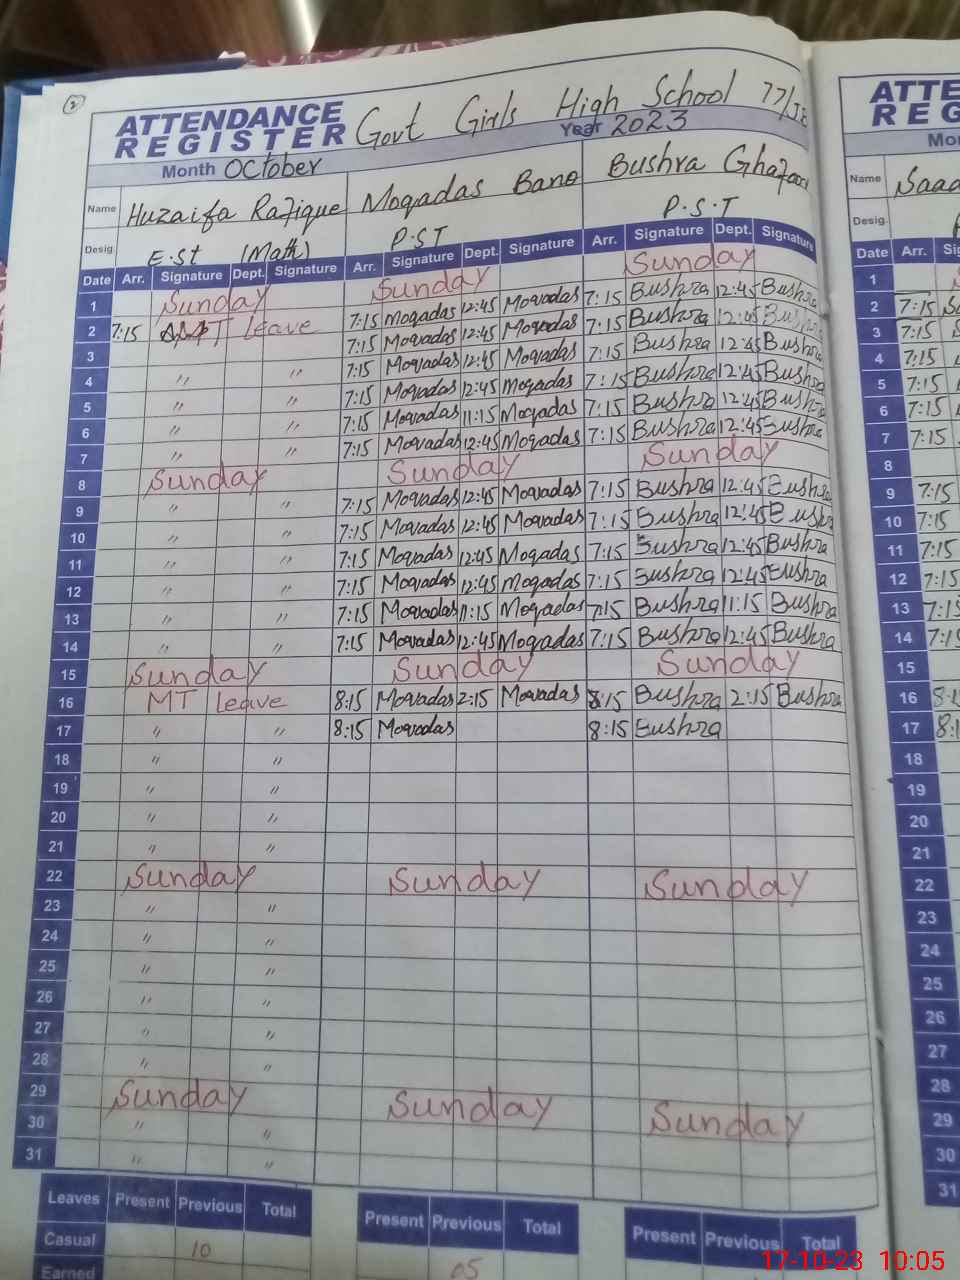 2
ATTENDANCE REGISTER Govt Girls High School 77/
Month October Year 2023
Name Huzaifa Rafique Moqadas Bano Bushra
Desig. E.St (Math) P.ST P.S.T
Date Arr. Signature Dept. Signature Arr. Signature Dept. Signature Arr. Signature Dept. Signature
1 Sunday Sunday Sunday
2 7:15 MT leave 7:15 Moqadas 12:45 Moqadas 7:15 Bushra 12:45 Bushra
3 〃 〃 7:15 Moqadas 12:45 Moqadas 7:15 Bushra 12:45 Bushra
4 〃 〃 7:15 Moqadas 12:45 Moqadas 7:15 Bushra 12:45 Bushra
5 〃 〃 7:15 Moqadas 12:45 Moqadas 7:15 Bushra 12:45 Bushra
6 〃 〃 7:15 Moqadas 11:15 Moqadas 7:15 Bushra 12:45 Bushra
7 〃 〃 7:15 Moqadas 12:45 Moqadas 7:15 Bushra 12:45 Bushra
8 Sunday Sunday Sunday
9 〃 〃 7:15 Moqadas 12:45 Moqadas 7:15 Bushra 12:45 Bushra
10 〃 〃 7:15 Moqadas 12:45 Moqadas 7:15 Bushra 12:45 Bushra
11 〃 〃 7:15 Moqadas 12:45 Moqadas 7:15 Bushra 12:45 Bushra
12 〃 〃 7:15 Moqadas 12:45 Moqadas 7:15 Bushra 12:45 Bushra
13 〃 〃 7:15 Moqadas 11:15 Moqadas 7:15 Bushra 11:15 Bushra
14 〃 〃 7:15 Moqadas 12:45 Moqadas 7:15 Bushra 12:45 Bushra
15 Sunday Sunday Sunday
16 MT leave 8:15 Moqadas 2:15 Moqadas 8:15 Bushra 2:15 Bushra
17 〃 〃 8:15 Moqadas 8:15 Bushra
18 〃 〃
19 〃 〃
20 〃 〃
21 〃 〃
22 Sunday Sunday Sunday
23 〃 〃
24 〃 〃
25 〃 〃
26 〃 〃
27 〃 〃
28 〃 〃
29 Sunday Sunday Sunday
30 〃 〃
31 〃 〃
Leaves Present Previous Total Present Previous Total Present Previous Total
Casual 10 05
Earned
Name Saad
Desig.
Date Arr.
1
2 7:15
3 7:15
4 7:15
5 7:15
6 7:15
7 7:15
8
9 7:15
10 7:15
11 7:15
12 7:15
13 7:15
14 7:15
15
16
17
18
19
20
21
22
23
24
25
26
27
28
29
30
31
17-10-23 10:05